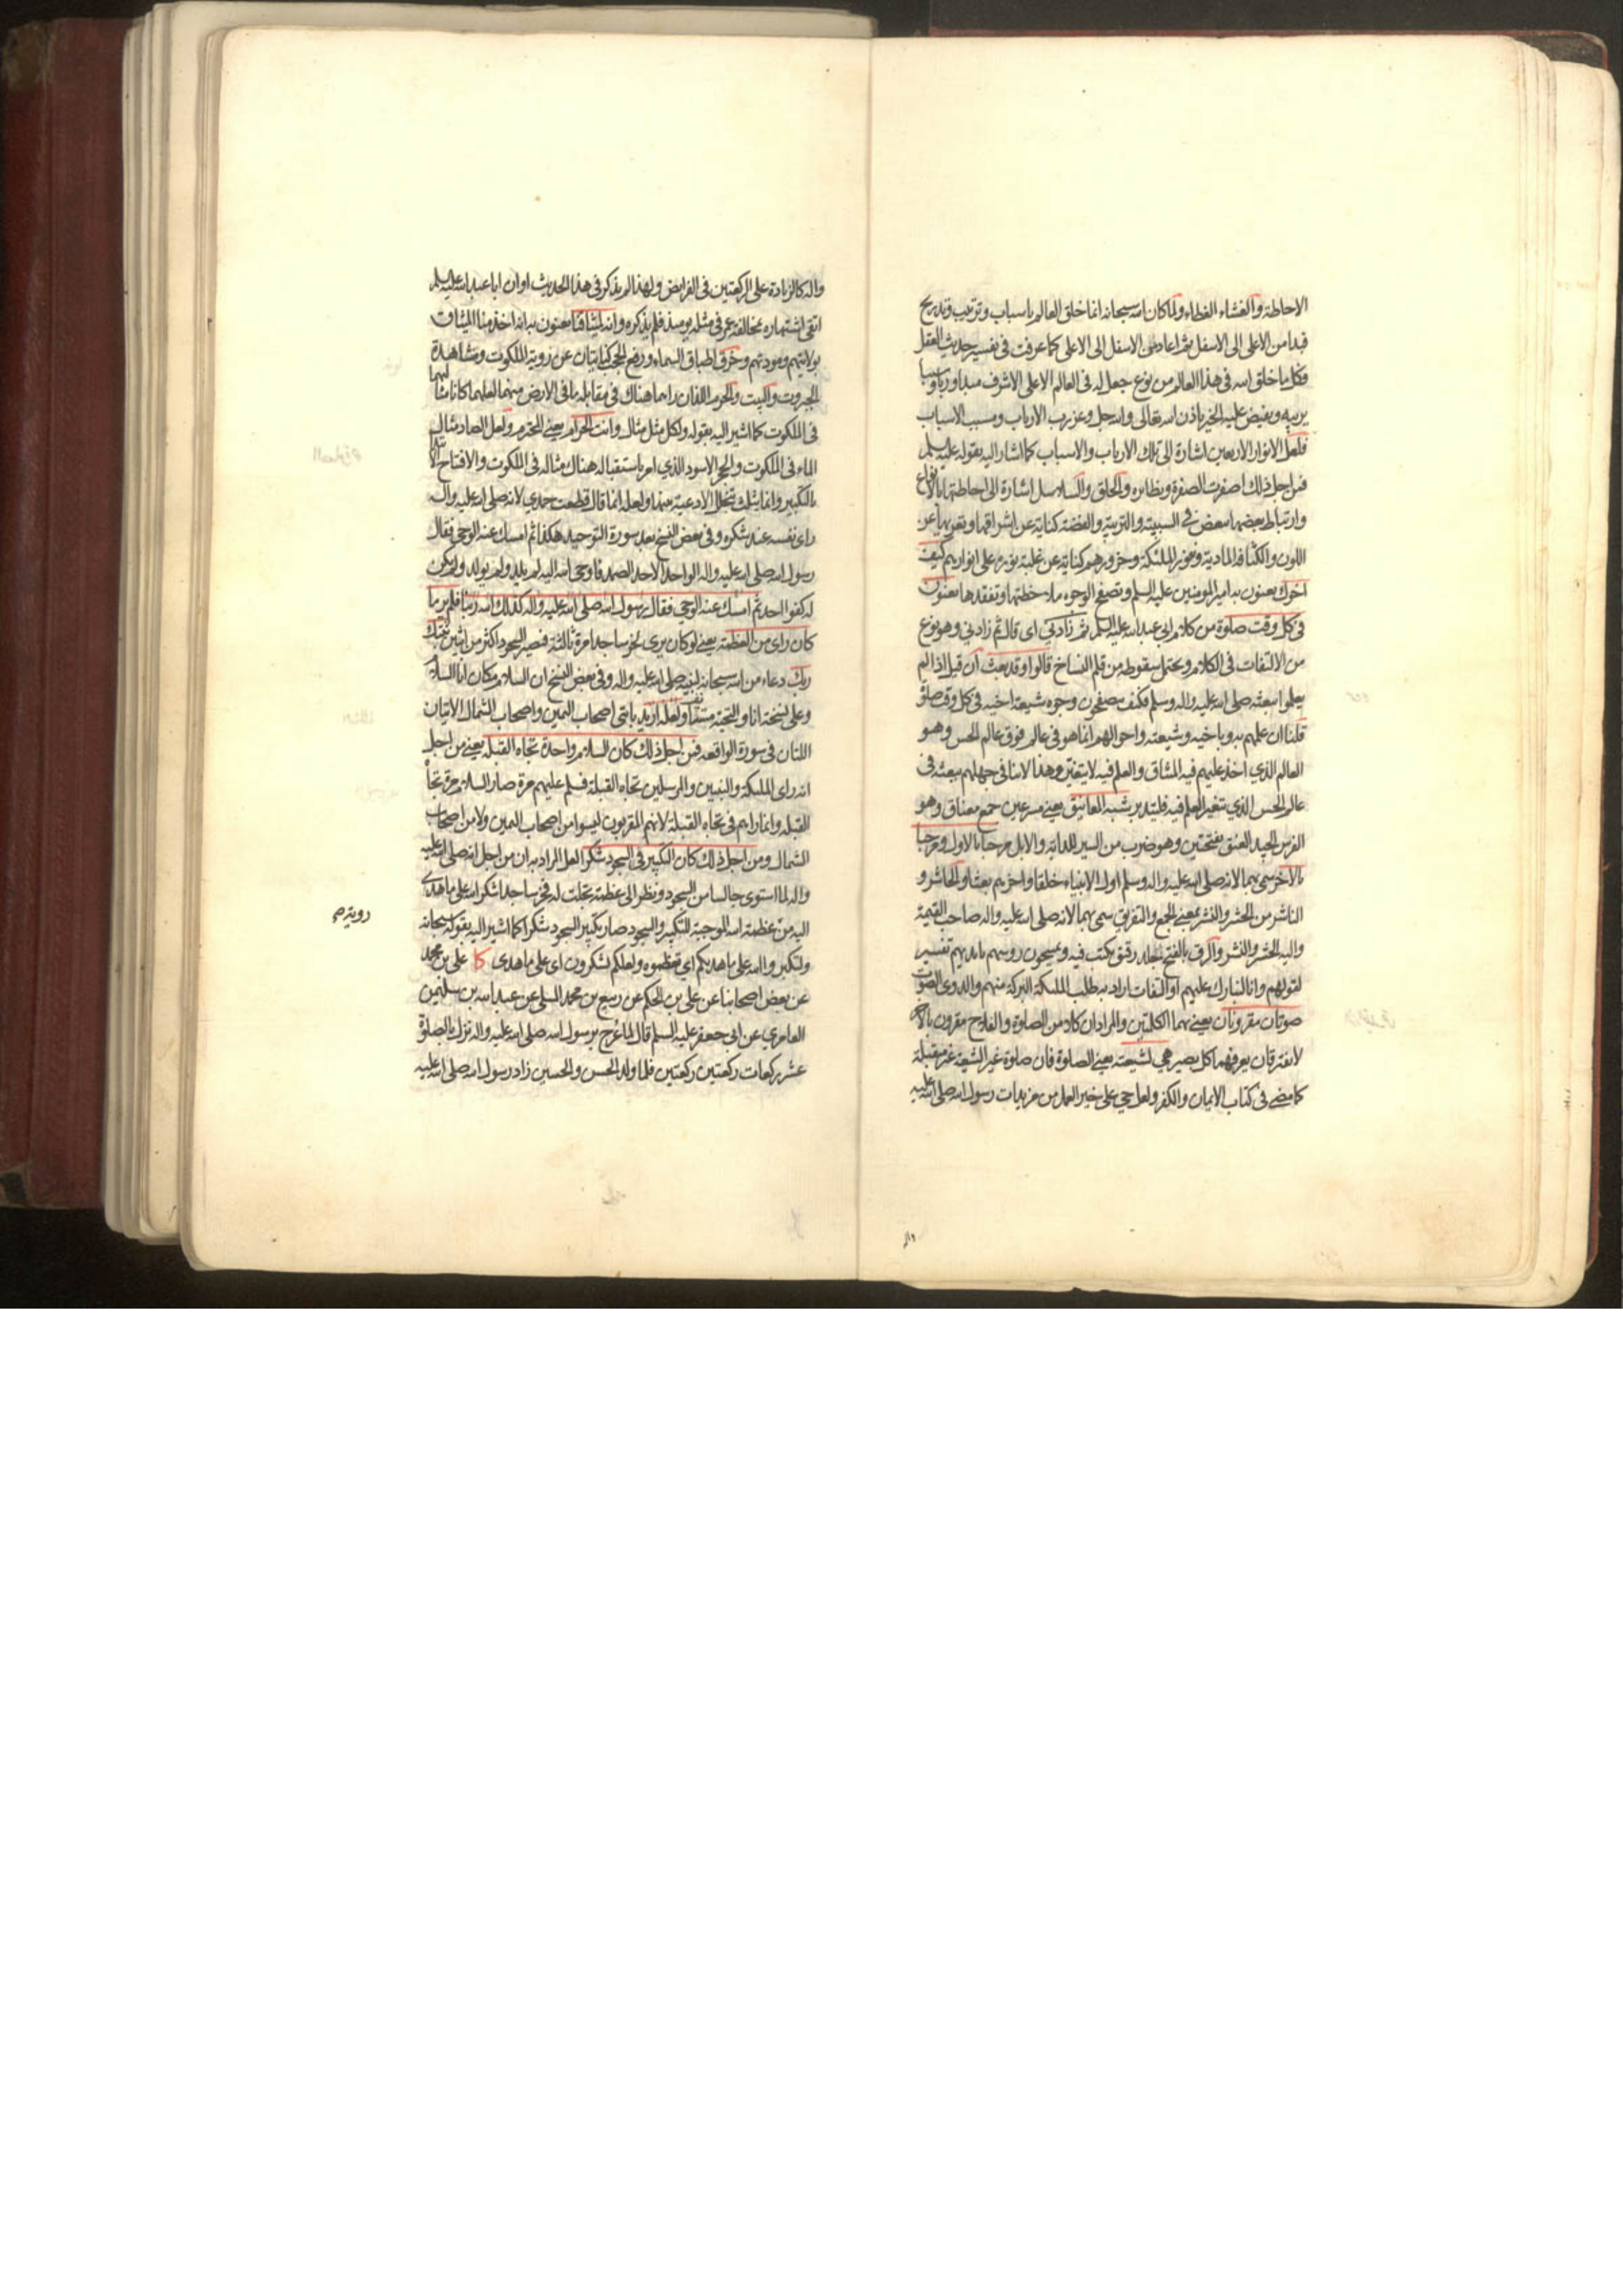 الاحاطة والغشاء الغطاء ولما كان الله سبحانه انما خلق العالم باسباب وترتيب وتدريج
فبدا من الاعلى الى الاسفل ثم اعاد من الاسفل الى الاعلى كما عرفت فى تفسير حديث العقل
وكل ما خلق الله فى هذا العالم من نوع جعل له فى العالم الاعلى الاشرف مبدا وربا وسببا
يربيه ويفيض عليه الخير باذن الله تعالى والله جل وعز رب الارباب ومسبب الاسباب
فلعل الانوار الاربعين اشارة الى تلك الارباب والاسباب كما اشار اليه بقوله عليه السلم
فمن اجل ذلك اصفرت الصفرة ونظايره والحلق والسلاسل اشارة الى احاطتها بالانواع
وارتباط بعضها ببعض فى السببية والتربية والفضة كناية عن اشراقها وتعريها عن
اللون والكثافة المادية ونفور الملئكة وخرورهم كناية عن غلبة نوره على انوارهم كيف
اخوك يعنون به امير المومنين عليه السلم وتصفح الوجوه ملاحظتها وتفقدها يعنون
فى كل وقت صلوة من كلام ابى عبد الله عليه السلم ثم زادنى اى قال ثم زادنى وهو نوع
من الالتفات فى الكلام ويحتمل سقوطه من قلم النساخ قالوا وقد بعث ان قيل اذا لم
يعلموا ببعثه صلى الله عليه واله وسلم فكيف يتصفحون وجوه شيعة اخيه فى كل وقت صلوة
قلنا ان علمهم به وباخيه وشيعته واحوالهم انما هو فى عالم فوق عالم الحس وهو
العالم الذي اخذ عليهم فيه الميثاق والعلم فيه لا يتغير وهذا لا ينافى جهلهم ببعثه فى
عالم الحس الذي يتغير العلم فيه فليتدبر شبه المعانيق يعني مسرعين جمع معناق وهو
الفرس الجيد العنق بفتحتين وهو ضرب من السير للدابة والابل مرحبا بالاول ومرحبا
بالاخر سمى بهما لانه صلى الله عليه واله وسلم اول الانبياء خلقا واخرهم بعثا والحاشر و
الناشر من الحشر والنشر بمعنى الجمع والتفريق سمى بهما لانه صلى الله عليه واله صاحب القيمة
واليه الحشر والنشر والرق بالفتح جلد رقيق يكتب فيه ويمسحون روسهم بايديهم تفسير
لقولهم وانا لنبارك عليهم او التفات اراد به طلب الملئكة البركة منهم والدوى الصوت
صوتان مقرونان يعني بهما الكلمتين والمراد ان كلا من الصلوة والفلاح مقرون بالاخر
لا يفترقان يعرفهما كل بصير هي لشيعته يعني الصلوة فان صلوة غير الشيعة غير مقبلة
كما مضى فى كتاب الايمان والكفر ولعل حي على خير العمل من مزيدات رسول الله صلى الله عليه
واله
واله كالزيادة على الركعتين فى الفرايض ولهذا لم يذكر فى هذا الحديث او ان ابا عبد الله عليه السلم
اتقى اشتهاره بمخالفة عمر فى مثله يومئذ فلم يذكره وانه لميثاقنا يعنون به انه اخذ منا الميثاق
بولايتهم ومودتهم وخرق اطباق السماء ورفع الحجب كنايتان عن روية الملكوت ومشاهدة
الجبروت والبيت والحرم اللذان راهما هناك فى مقابلة ما فى الارض منهما لعلهما كانا مثاليهما
فى الملكوت كما اشير اليه بقوله ولكل مثل مثال وانت الحرام يعني المحترم ولعل الصاد مثال
الماء فى الملكوت والحجر الاسود الذي امر باستقباله هناك مثاله فى الملكوت والافتتاح
بالتكبير وانما يثلث بتخلل الادعية بينها ولعله انما قال قطعت حمدي لانه صلى الله عليه واله
راى نفسه عند شكره وفى بعض النسخ بعد سورة التوحيد هكذا ثم امسك عنه الوحي فقال
رسول الله صلى الله عليه واله الواحد الاحد الصمد فاوحى الله اليه لم يلد ولم يولد ولم يكن
له كفوا احد ثم امسك عنه الوحي فقال رسول الله صلى الله عليه واله كذلك الله ربنا فلم ير ما
كان راى من العظمة يعني لو كان يرى لخر ساجدا مرة ثالثة فتصير السجود اكثر من اثنين ثبتك
ربك دعاء من الله سبحانه لنبيه صلى الله عليه واله وفى بعض النسخ ان السلام مكان انا السلام
اللتان فى سورة الواقعة فمن اجل ذلك كان السلام واحدة تجاه القبلة يعني من اجل
انه راى الملئكة والنبيين والمرسلين تجاه القبلة فسلم عليهم مرة صار السلام مرة تجاه
القبلة وانما راهم فى تجاه القبلة لانهم المقربون ليسوا من اصحاب اليمين ولا من اصحاب
الشمال ومن اجل ذلك كان التكبير فى السجود شكرا لعل المراد به ان من اجل انه صلى الله عليه
واله لما استوى جالسا من السجود ونظر الى عظمة تجلت له فخر ساجدا شكرا لله على ما هدى
اليه من عظمة الله الموجبة للتكبير والسجود صار تكبير السجود شكرا كما اشير اليه بقوله سبحانه
رويته م
ولتكبروا الله على ما هديكم اي تعظموه ولعلكم تشكرون اى على ما هدى كا علي بن محمد
عن بعض اصحابنا عن علي بن الحكم عن ربيع بن محمد المسلي عن عبد الله بن سليمن
العامري عن ابى جعفر عليه السلم قال لما عرج برسول الله صلى الله عليه واله نزل بالصلوة
عشر ركعات ركعتين ركعتين فلما ولد الحسن والحسين زاد رسول الله صلى الله عليه